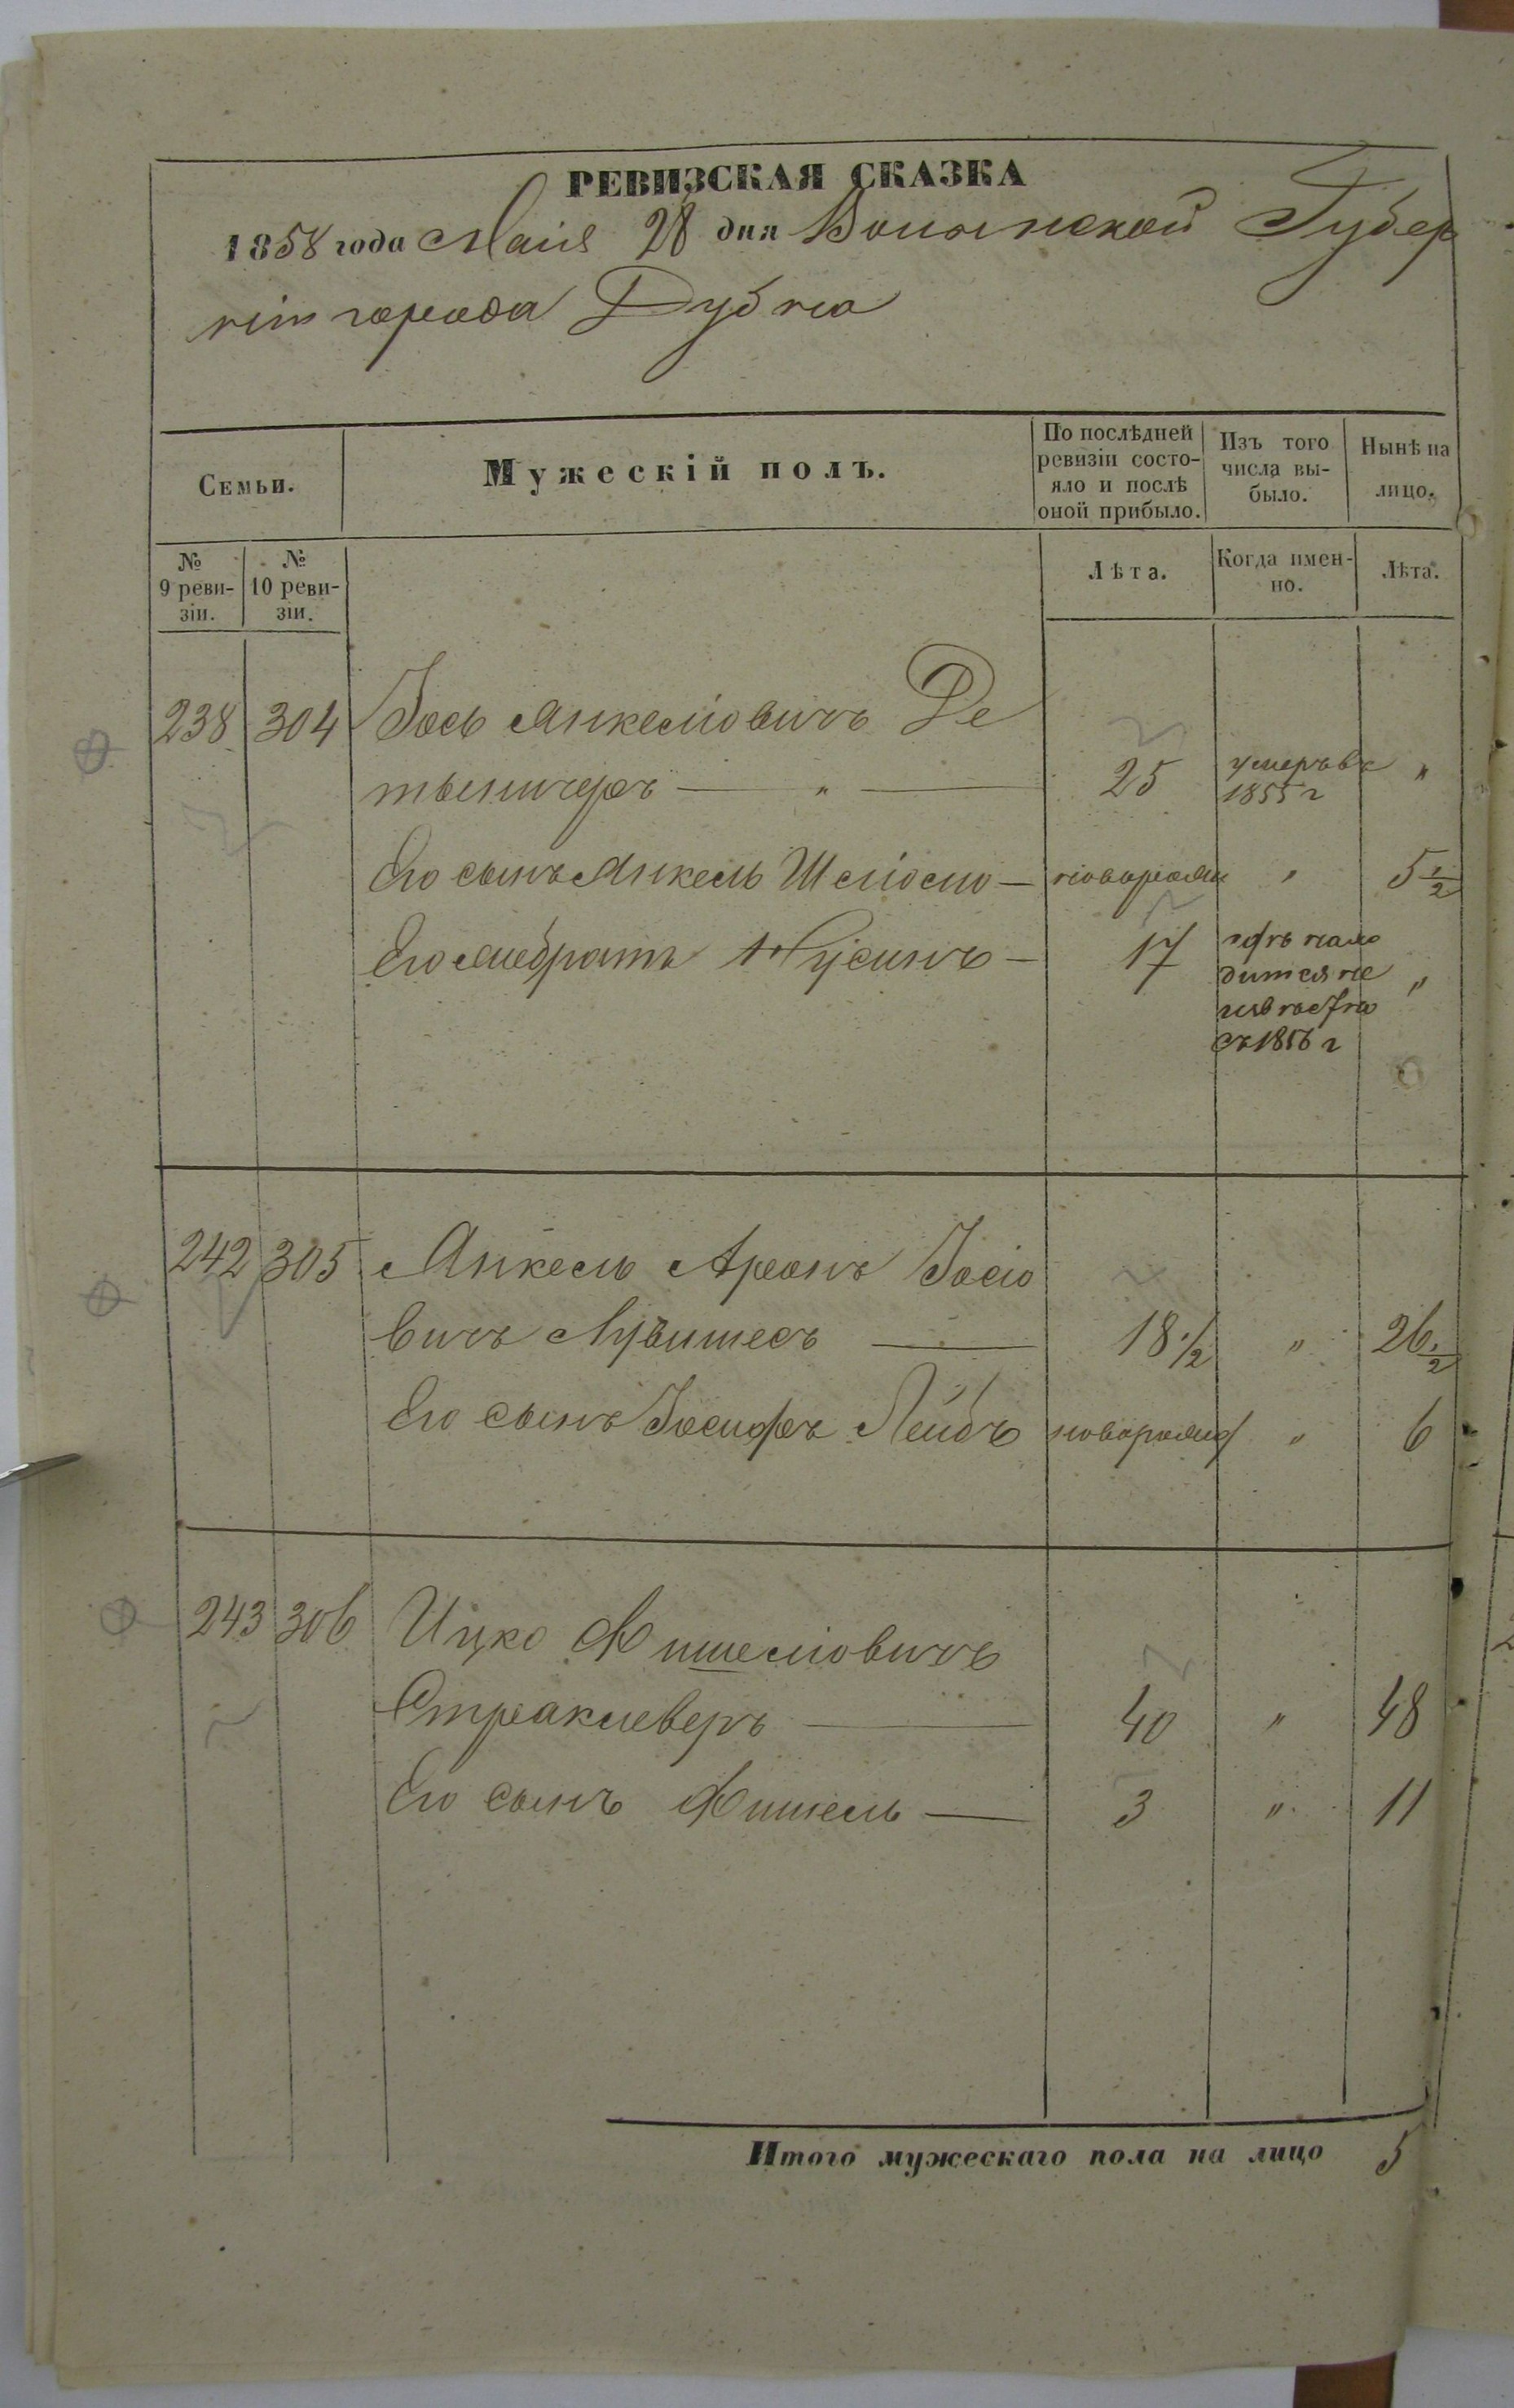 РЕВИЗСКАЯ СКАЗКА
1858 года Маія 28 дня Волынской Губер
ніи города Дубна
Семьи.
Мужескій полъ.
По послѣдней ревизіи состо-
яло и послѣ
оной прибыло.
Изъ того
числа вы-
было.
Нынѣ на
лицо.
№
9 реви-
зіи.
№
10 реви-
зіи.
Лѣта.
Когда имен-
но.
Лѣта.
238 304 Іось Янкелiовичъ Де
тыничеръ — " — 25 умеръ въ 1855 г "
Его сынъ Янкель Шліомо — новорожд " 5 1/2
Его же братъ Нусинъ — 17 гдѣ нахо
дится не "
извѣстно
съ 1856 г
242 305 Янкель Аронъ Іосіо
вичъ 18 1/2 " 26 1/2
Его сынъ Іосифъ Лейбъ новорожд " 6
243 306 Ицко Фишеліовичъ
Стракleверъ — 40 " 48
Его сынъ Фишель — 3 " 11
Итого мужескаго пола на лицо 5